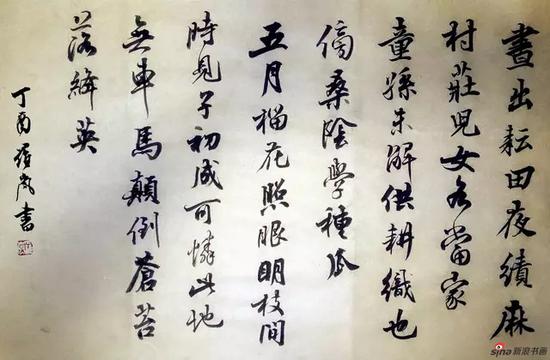 晝出耘田夜績麻
村莊兒女各當家
童孫未解供耕織也
傍桑陰學種瓜
五月榴花照眼明枝間
時見子初成可憐此地
無車馬顛倒蒼苔
落絳英
丁酉
書
sina 新浪书画